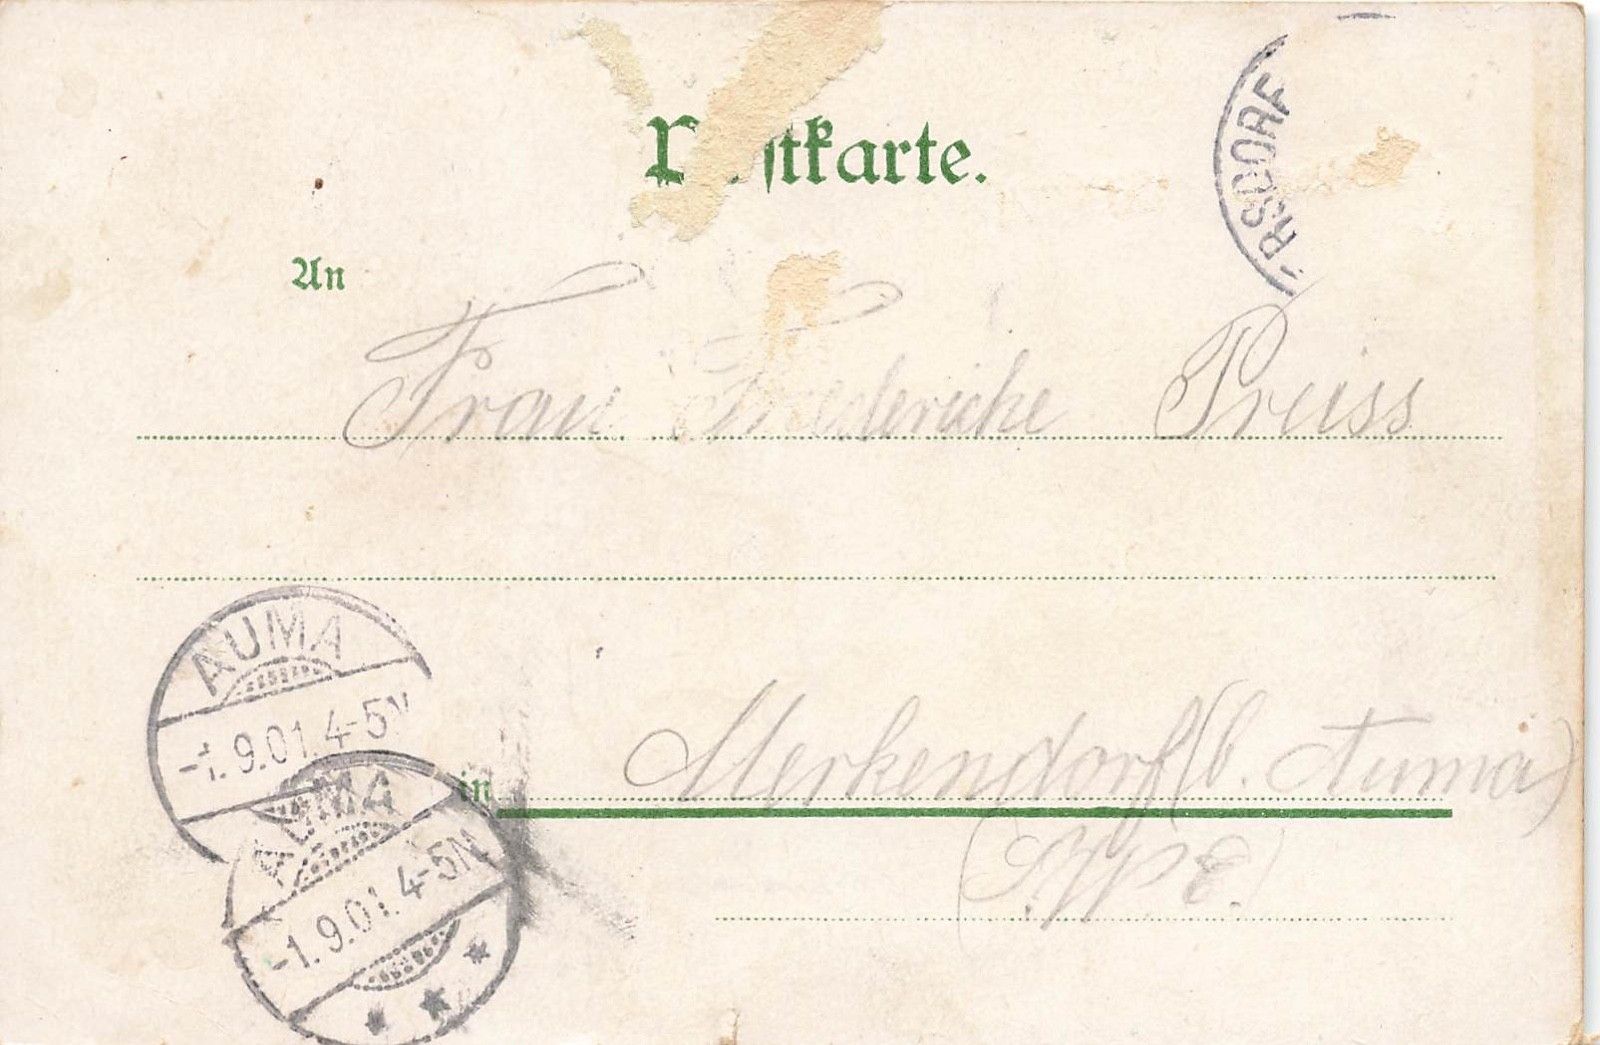 Postkarte.
RSDORF
An
Frau Friederike Preiss
AUMA
-1.9.01. 4-5N
in Merkendorf (b. Auma)
AUMA
-1.9.01. 4-5N